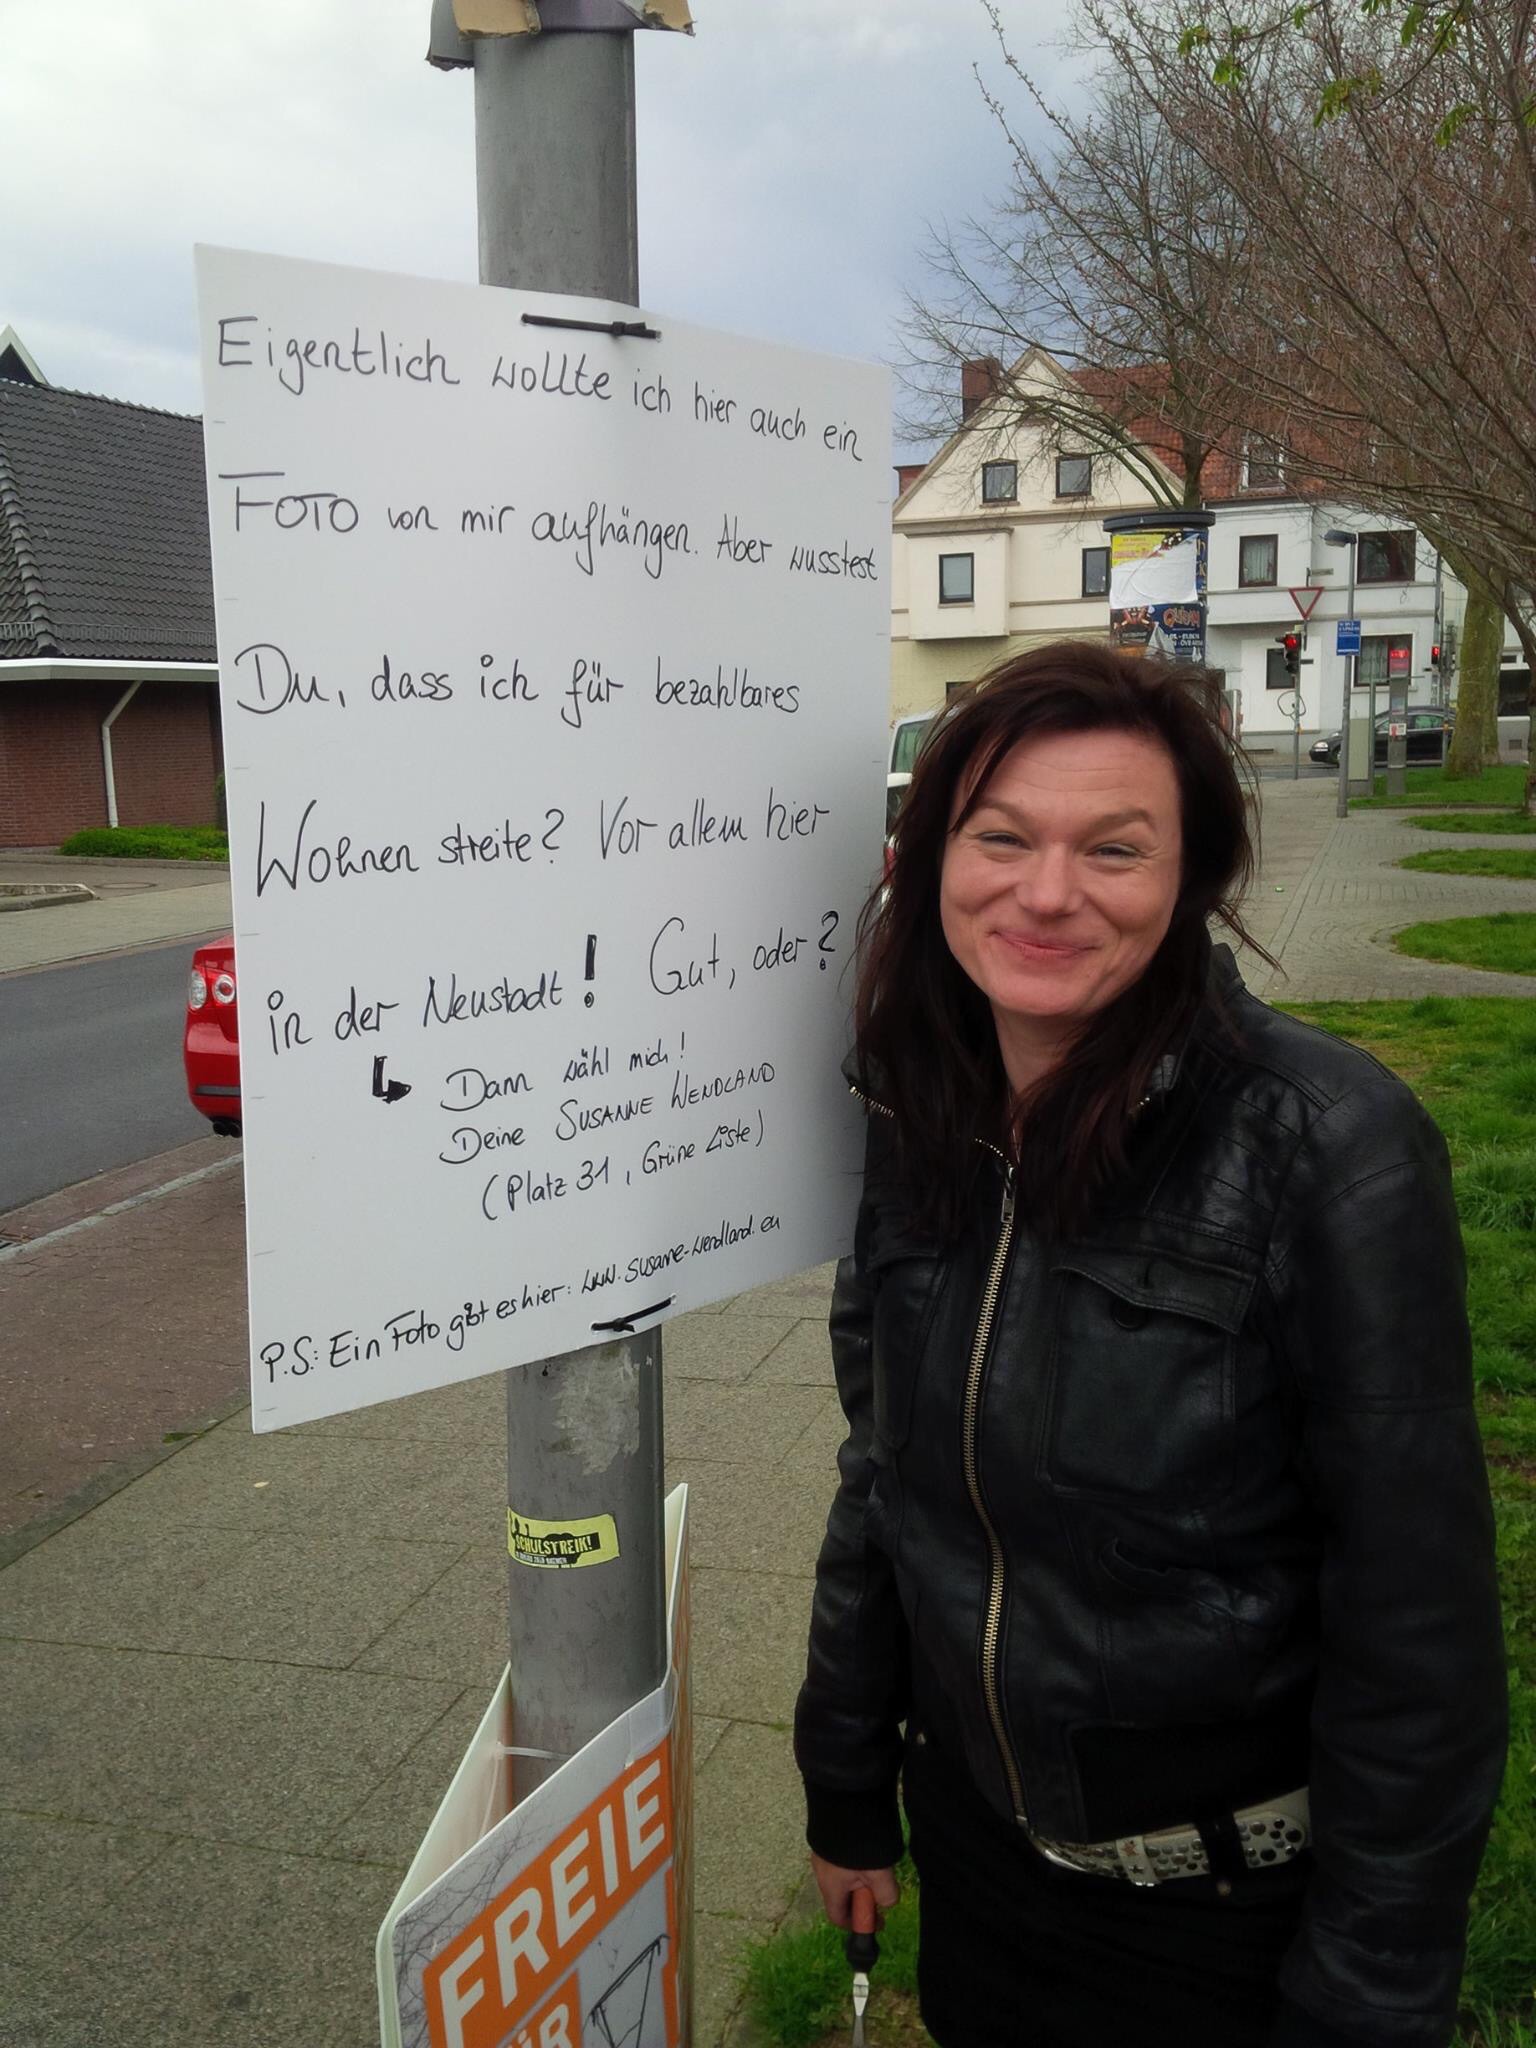 Eigentlich wollte ich hier auch ein
FOTO von mir aufhängen. Aber wusstest
Du, dass ich für bezahlbares
Wohnen streite? Vor allem hier
in der Neustadt! Gut, oder?
↳ Dann wähl mich!
Deine SUSANNE WENDLAND
(Platz 31, Grüne Liste)
P.S.: Ein Foto gibt es hier: www.susanne-wendland.eu
SCHULSTREIK!
FREIE
QUIDAM